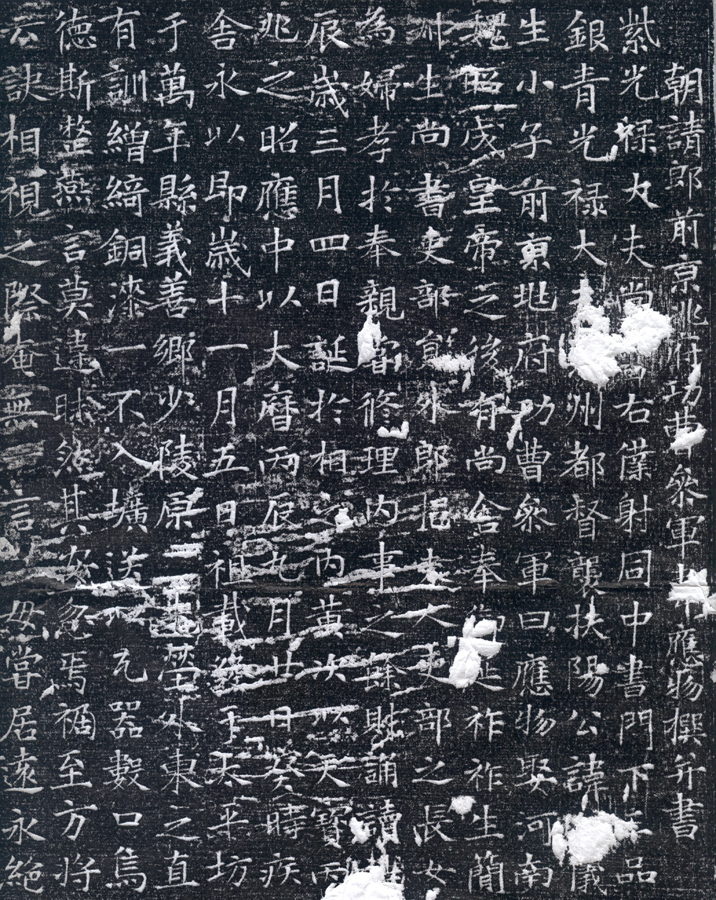 朝請郎前京兆府功曹參軍韋應物撰并書
紫光祿大夫尚右僕射同中書門下三品
銀青光祿大州都督襲扶陽公諱儀
生小子前京兆府功曹參軍曰應物娶河南
魏昭成皇帝之後有尚舍奉延祚祚生簡
州生尚書吏部員外郎挹夫人吏部之長女
為婦孝於奉親嘗修理內事之餘則誦讀
辰歲三月四日誕於相之內黃次以天寶丙
兆之昭應中以大曆丙辰九月廿日癸時疾
舍永以即歲十一月五日祖載終于太平坊
于萬年縣義善鄉少陵原塋外東之直
有訓繒綺銅漆一不入壙送以瓦器數口烏
德斯整燕言莫違昧然其安忽焉禍至方將
云訣相視之際奄無一言以毋嘗居遠永絕